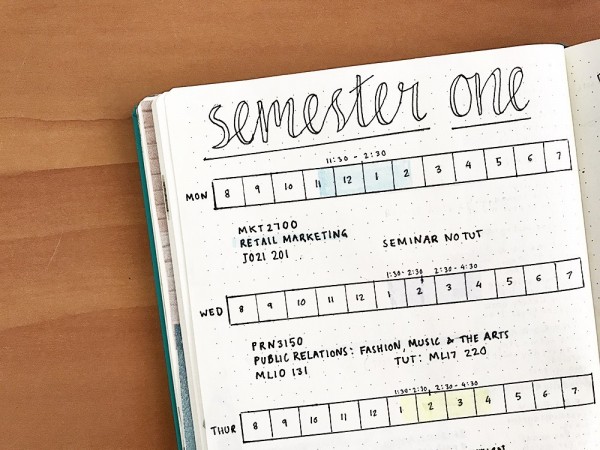 semester one
11:30 - 2:30
MON 8 9 10 11 12 1 2 3 4 5 6 7
MKT2700
RETAIL MARKETING
J021 201
SEMINAR NO TUT
1:30-2:30 2:30-4:30
WED 8 9 10 11 12 1 2 3 4 5 6 7
PRN3150
PUBLIC RELATIONS: FASHION, MUSIC & THE ARTS
ML10 131 TUT: ML17 220
1:30-2:30, 2:30-4:30
THUR 8 9 10 11 12 1 2 3 4 5 6 7